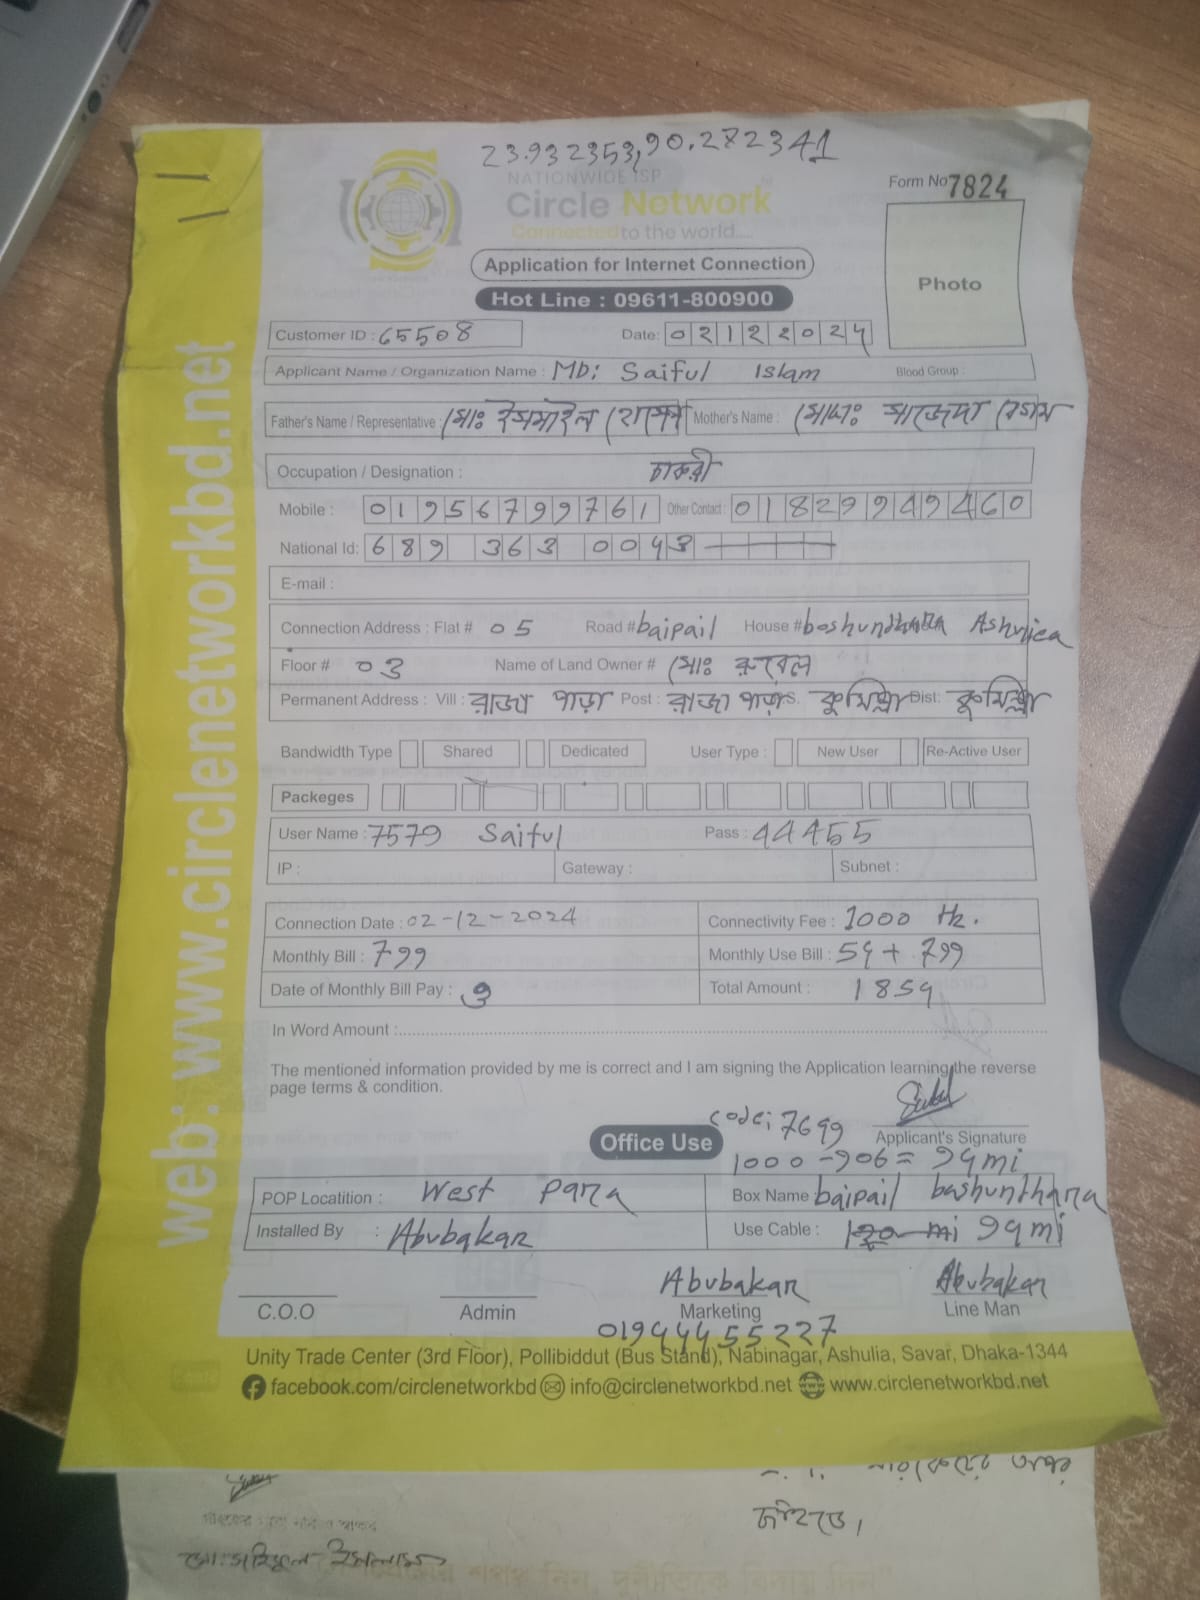 23.932353,90.272341
NATIONWIDE ISP
Circle Network
Connected to the world....
Form No 7824
Photo
Application for Internet Connection
Hot Line : 09611-800900
Customer ID : 65508 Date: 02122024
Applicant Name / Organization Name : Md: Saiful Islam Blood Group :
Father's Name / Representative : মোঃ ইসমাইল হোসেন Mother's Name : মোসাঃ সাজেদা বেগম
Occupation / Designation : চাকরী
Mobile : 01956799761 Other Contact : 01829949460
National Id: 689 363 0043
E-mail :
Connection Address : Flat # 05 Road # baipail House # boshundhara Ashuliea
Floor # 03 Name of Land Owner # মোঃ রুবেল
Permanent Address : Vill : রাজা পাড়া Post : রাজা পাড়া P.S. কুমিল্লা Dist: কুমিল্লা
Bandwidth Type Shared Dedicated User Type : New User Re-Active User
Packeges
User Name : 7579 Saiful Pass : 44455
IP : Gateway : Subnet :
Connection Date : 02-12-2024 Connectivity Fee : 1000 tk.
Monthly Bill : 799 Monthly Use Bill : 54 + 799
Date of Monthly Bill Pay : 3 Total Amount : 1854
In Word Amount :
The mentioned information provided by me is correct and I am signing the Application learning the reverse
page terms & condition.
code: 7699
Applicant's Signature
Office Use
1000 - 906 = 94 mi
POP Locatition : West para Box Name baipail bashunthara
Installed By : Abubakar Use Cable : 94 mi
Abubakar Abubakar
C.O.O Admin Marketing Line Man
01944455227
Unity Trade Center (3rd Floor), Pollibiddut (Bus Stand), Nabinagar, Ashulia, Savar, Dhaka-1344
facebook.com/circlenetworkbd info@circlenetworkbd.net www.circlenetworkbd.net
web: www.circlenetworkbd.net